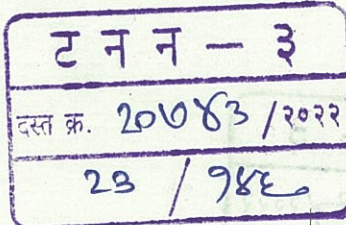 ट न न — ३
दस्त क्र. २०७४३ /२०२२
२३ / १४६